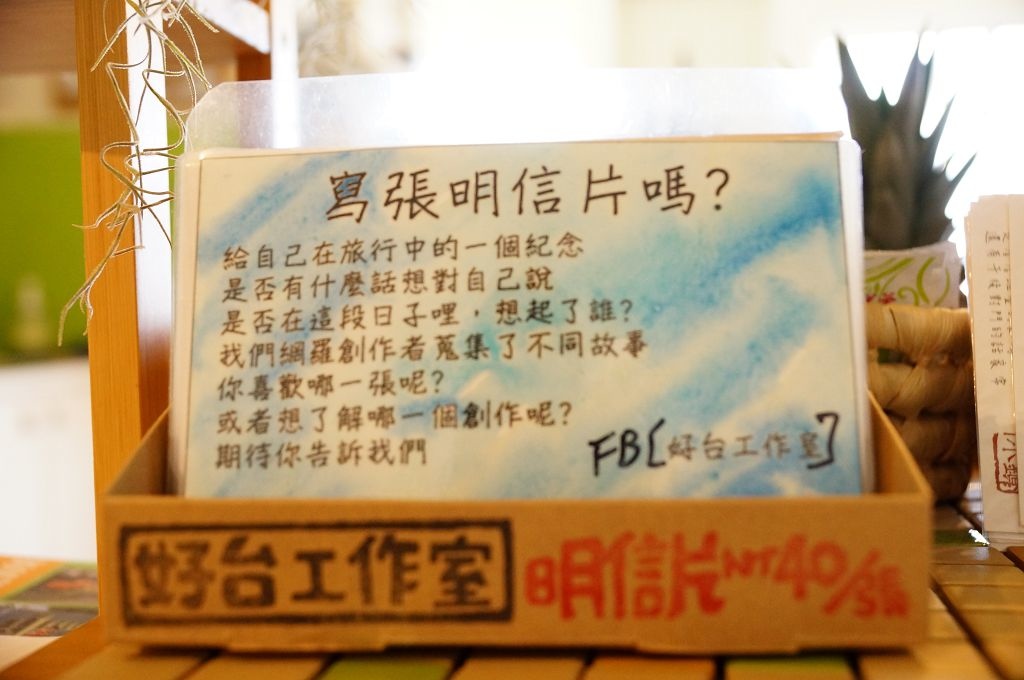 寫張明信片嗎?
給自己在旅行中的一個紀念
是否有什麼話想對自己說
是否在這段日子哩，想起了誰?
我們網羅創作者蒐集了不同故事
你喜歡哪一張呢?
或者想了解哪一個創作呢?
期待你告訴我們
FB[好台工作室]
好台工作室
明信片NT40/張